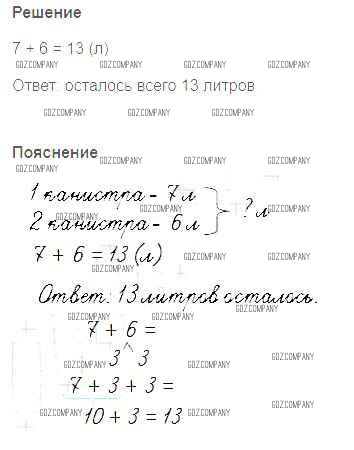 Решение
7 + 6 = 13 (л)
GDZCOMPANY GDZCOMPANY GDZCOMPANY
Ответ: осталось всего 13 литров
GDZCOMPANY GDZCOMPANY GDZCOMPANY
Пояснение
GDZCOMPANY GDZCOMPANY GDZCOMPANY
1 канистра - 7 л
GDZCOMPANY GDZCOMPANY
? л
2 канистра - 6 л
7 + 6 = 13 (л)
GDZCOMPANY GDZCOMPANY
GDZCOMPANY
Ответ: 13 литров осталось.
GDZCOMPANY GDZCOMPANY GDZCOMPANY
7 + 6 =
3 3
GDZCOMPANY GDZCOMPANY GDZCOMPANY
7 + 3 + 3 =
10 + 3 = 13
GDZCOMPANY GDZCOMPANY GDZCOMPANY